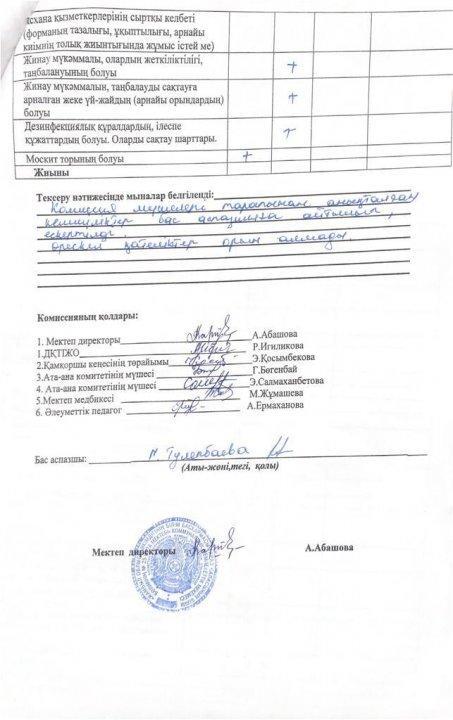 асхана қызметкерлерінің сыртқы келбеті
(форманың тазалығы, ұқыптылығы, арнайы
киімнің толық жиынтығында жұмыс істей ме)
Жинау мүкәммалы, олардың жеткіліктілігі, +
таңбалануының болуы
Жинау мүкәммалын, таңбалауды сақтауға +
арналған жеке үй-жайдың (арнайы орындардың)
болуы
Дезинфекциялық құралдардың, ілеспе +
құжаттардың болуы. Оларды сақтау шарттары.
Москит торының болуы +
Жиыны
Тексеру нәтижесінде мыналар белгіленді:
Комиссия мүшелері тарапынан анықталған
кемшіліктер бас аспазшыға айтылып,
ескертілді.
өрескел қателіктер орын алмады.
Комиссияның қолдары:
1. Мектеп директоры А.Абашова
1.ДҚТІЖО Р.Игиликова
2.Қамқоршы кеңесінің төрайымы Э.Қосымбекова
3.Ата-ана комитетінің мүшесі Г.Бөгенбай
4. Ата-ана комитетінің мүшесі Э.Салмаханбетова
5.Мектеп медбикесі М.Жұмашева
6. Әлеуметтік педагог А.Ермаханова
Бас аспазшы: Тулепбаева
(Аты-жөні,тегі, қолы)
Мектеп директоры А.Абашова